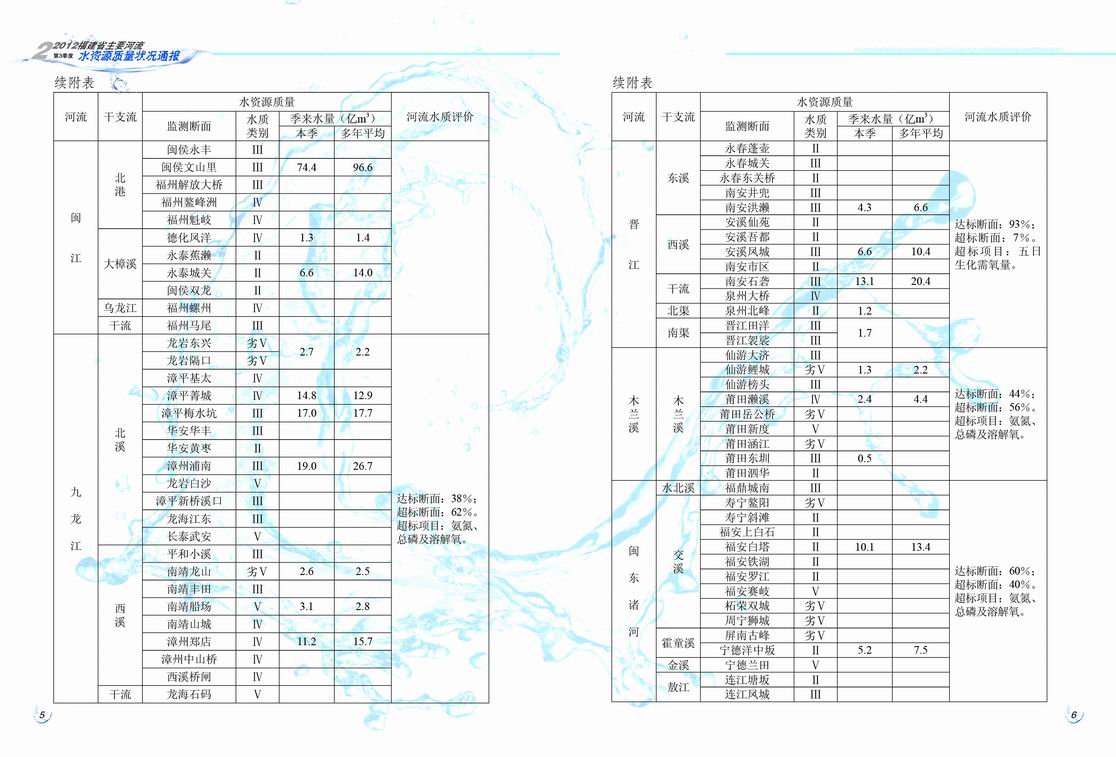 2 2012福建省主要河流
第3季度 水资源质量状况通报
续附表
河流 干支流 水资源质量 河流水质评价
监测断面 水质类别 季来水量（亿m³）
本季 多年平均
闽江 北港 闽侯永丰 Ⅲ
闽侯文山里 Ⅲ 74.4 96.6
福州解放大桥 Ⅲ
福州鳌峰洲 Ⅳ
福州魁岐 Ⅳ
大樟溪 德化凤洋 Ⅳ 1.3 1.4
永泰蕉濑 Ⅱ
永泰城关 Ⅱ 6.6 14.0
闽侯双龙 Ⅱ
乌龙江 福州螺州 Ⅳ
干流 福州马尾 Ⅲ
九龙江 北溪 龙岩东兴 劣Ⅴ 2.7 2.2
龙岩隔口 劣Ⅴ
漳平基太 Ⅳ
漳平菁城 Ⅳ 14.8 12.9
漳平梅水坑 Ⅲ 17.0 17.7
华安华丰 Ⅲ
华安黄枣 Ⅱ
漳州浦南 Ⅲ 19.0 26.7
龙岩白沙 Ⅴ
漳平新桥溪口 Ⅲ
龙海江东 Ⅲ
长泰武安 Ⅴ
西溪 平和小溪 Ⅲ
南靖龙山 劣Ⅴ 2.6 2.5
南靖丰田 Ⅲ
南靖船场 Ⅴ 3.1 2.8
南靖山城 Ⅳ
漳州郑店 Ⅳ 11.2 15.7
漳州中山桥 Ⅳ
西溪桥闸 Ⅳ
干流 龙海石码 Ⅴ
达标断面：38%；
超标断面：62%。
超标项目：氨氮、
总磷及溶解氧。
5
续附表
河流 干支流 水资源质量 河流水质评价
监测断面 水质类别 季来水量（亿m³）
本季 多年平均
晋江 东溪 永春蓬壶 Ⅱ
永春城关 Ⅲ
永春东关桥 Ⅱ
南安井兜 Ⅲ
南安洪濑 Ⅲ 4.3 6.6
西溪 安溪仙苑 Ⅱ
安溪吾都 Ⅱ
安溪凤城 Ⅲ 6.6 10.4
南安市区 Ⅱ
干流 南安石砻 Ⅲ 13.1 20.4
泉州大桥 Ⅳ
北渠 泉州北峰 Ⅱ 1.2
南渠 晋江田洋 Ⅲ 1.7
晋江袈裟 Ⅲ
达标断面：93%；
超标断面：7%。
超标项目：五日
生化需氧量。
木兰溪 木兰溪 仙游大济 Ⅲ
仙游鲤城 劣Ⅴ 1.3 2.2
仙游榜头 Ⅲ
莆田濑溪 Ⅳ 2.4 4.4
莆田岳公桥 劣Ⅴ
莆田新度 Ⅴ
莆田涵江 劣Ⅴ
莆田东圳 Ⅲ 0.5
莆田泗华 Ⅱ
达标断面：44%；
超标断面：56%。
超标项目：氨氮、
总磷及溶解氧。
闽东诸河 水北溪 福鼎城南 Ⅲ
交溪 寿宁鳌阳 劣Ⅴ
寿宁斜滩 Ⅱ
福安上白石 Ⅱ
福安白塔 Ⅱ 10.1 13.4
福安铁湖 Ⅱ
福安罗江 Ⅱ
福安赛岐 Ⅴ
柘荣双城 劣Ⅴ
周宁狮城 劣Ⅴ
霍童溪 屏南古峰 劣Ⅴ
宁德洋中坂 Ⅱ 5.2 7.5
金溪 宁德兰田 Ⅴ
敖江 连江塘坂 Ⅱ
连江凤城 Ⅲ
达标断面：60%；
超标断面：40%。
超标项目：氨氮、
总磷及溶解氧。
6